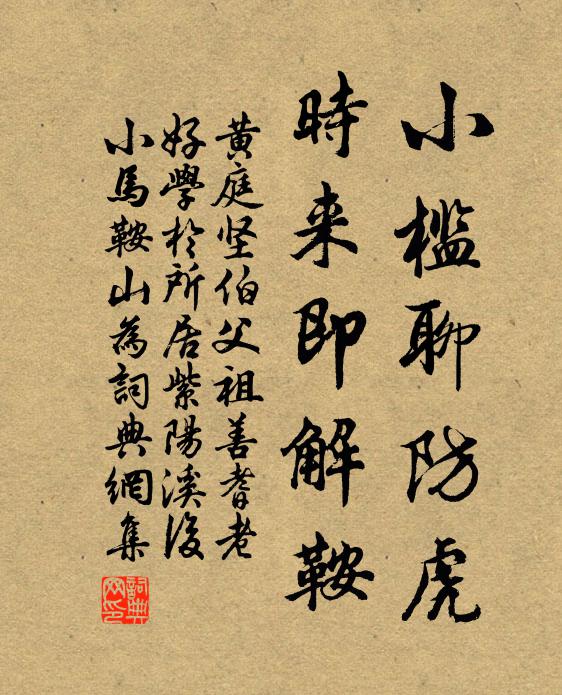 小檻聊防虎
時来即解鞍
黄庭坚伯父祖善耆老
好學於所居紫陽溪後
小馬鞍山為詞典網集
詞典网印